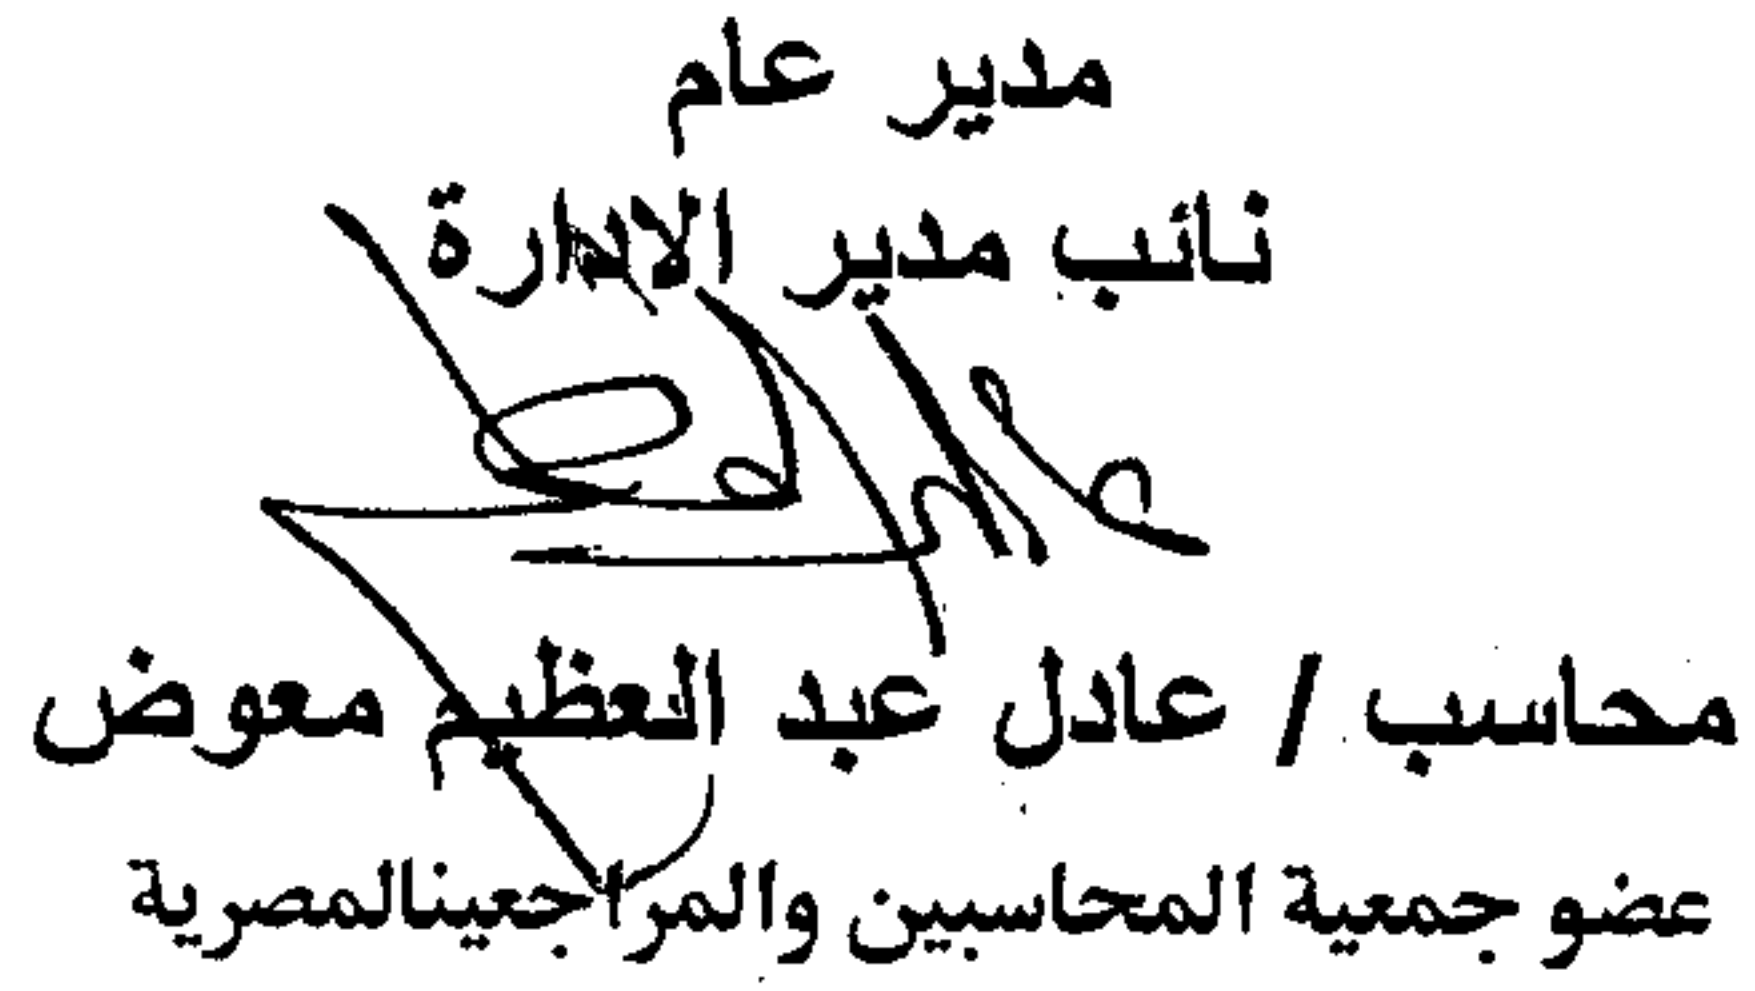 مدير عام
نائب مدير الادارة
محاسب / عادل عبد العظيم معوض
عضو جمعية المحاسبين والمراجعينالمصرية